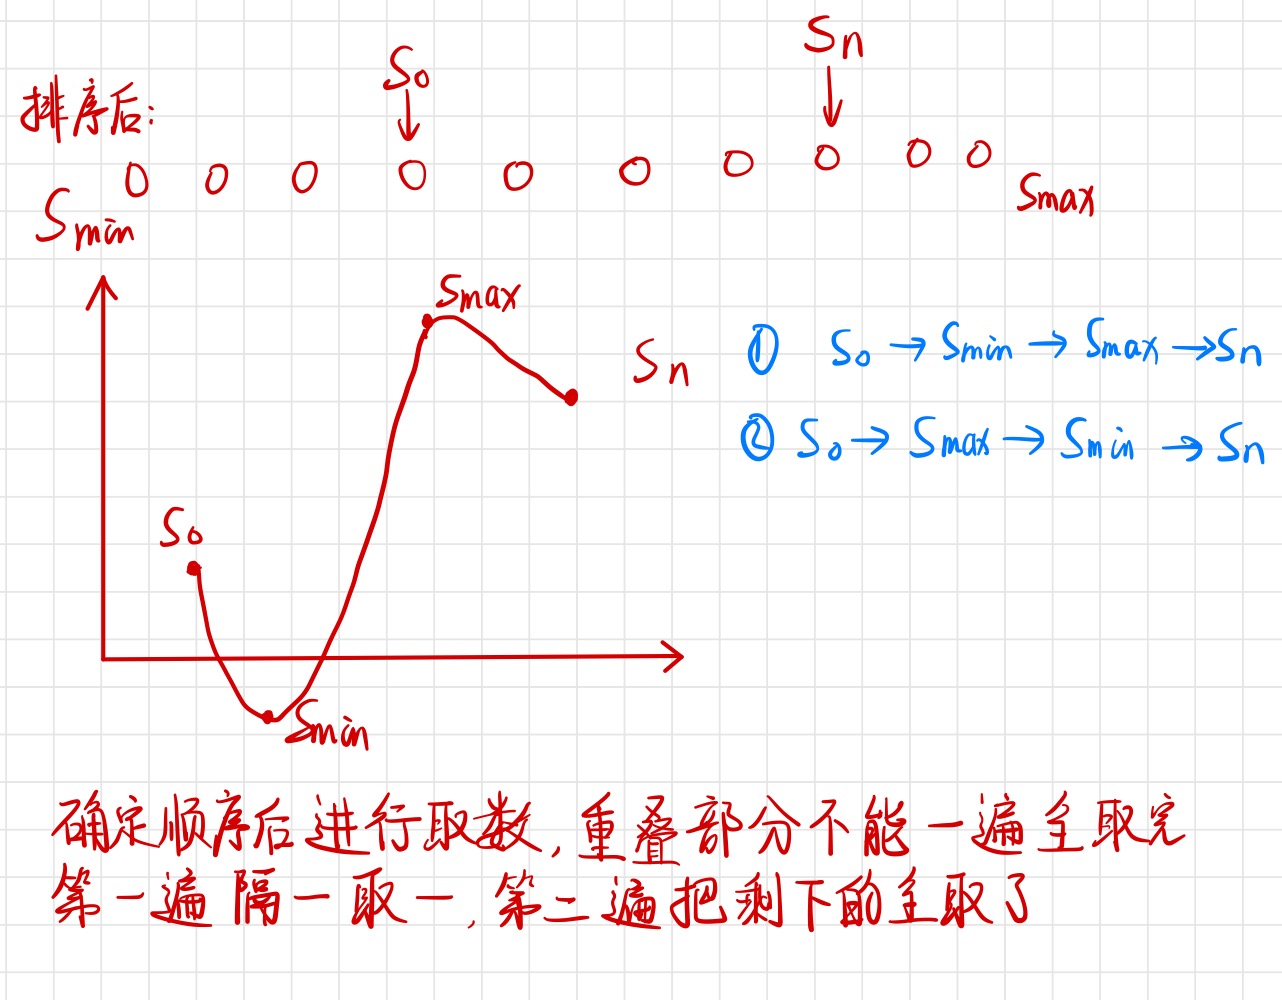 S₀
Sn
排序后:
Smin
Smax
Smax
Sn
S₀
Smin
① S₀→Smin→Smax→Sn
② S₀→Smax→Smin→Sn
确定顺序后进行取数,重叠部分不能一遍全取完
第一遍隔一取一,第二遍把剩下的全取了